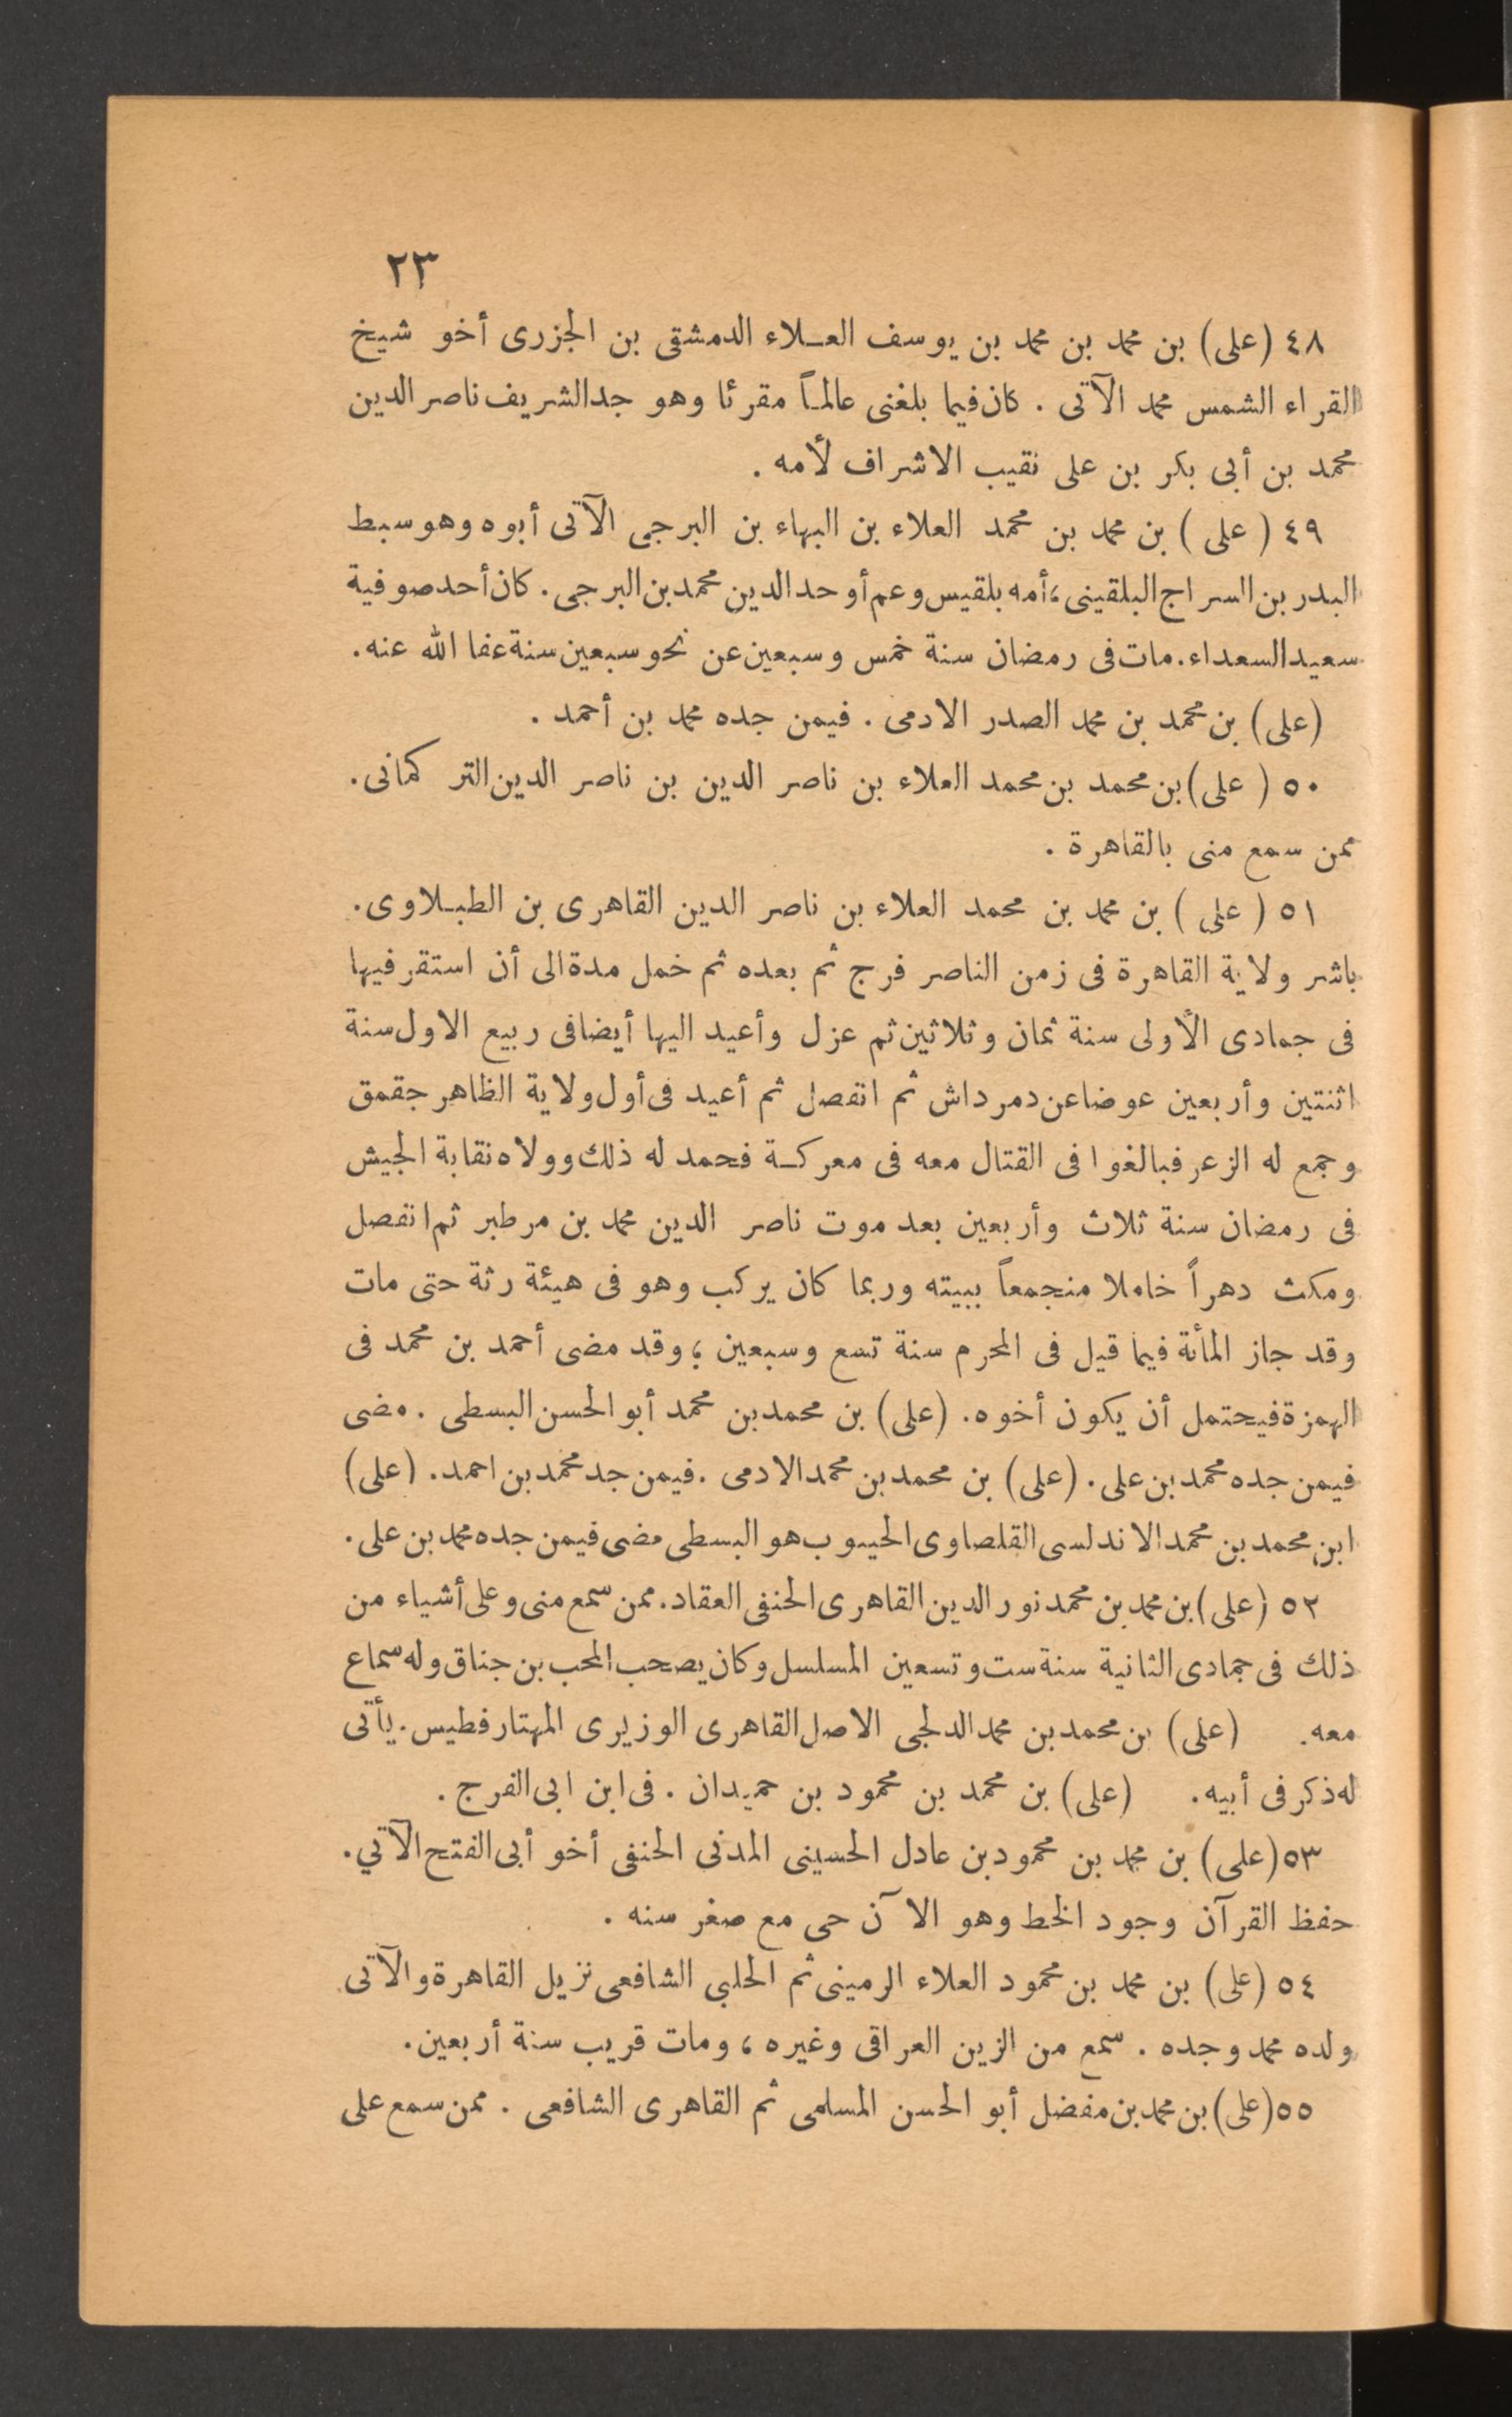 ٢٣
٤٨ (على) بن محمد بن محمد بن محمد بن يوسف العـلاء الدمشقى بن الجزرى أخو شيخ
القراء الشمس محمد الآتى . كان فيما بلغنى عالمـاً مقرئا وهو جد الشريف ناصر الدين
محمد بن أبى بكر بن على نقيب الاشراف لأمه .
٤٩ ( على ) بن محمد بن محمد العلاء بن البهاء بن البرجى الآتى أبوه وهو سبط
البدر بن السراج البلقينى ، أمه بلقيس وعم أوحد الدين محمد بن البرجى . كان أحد صوفية
سعيد السعداء . مات فى رمضان سنة خمس وسبعين عن نحو سبعين سنة عفا الله عنه .
(على) بن محمد بن محمد الصدر الادمى . فيمن جده محمد بن أحمد .
٥٠ ( على) بن محمد بن محمد العلاء بن ناصر الدين بن ناصر الدين التركمانى .
ممن سمع منى بالقاهرة .
٥١ ( على ) بن محمد بن محمد العلاء بن ناصر الدين القاهرى بن الطبـلاوى .
باشر ولاية القاهرة فى زمن الناصر فرج ثم بعده ثم خمل مدة الى أن استقر فيها
فى جمادى الأولى سنة ثمان وثلاثين ثم عزل وأعيد اليها أيضا فى ربيع الاول سنة
اثنتين وأربعين عوضا عن دمرداش ثم انفصل ثم أعيد فى أول ولاية الظاهر جقمق
وجمع له الزعر فبالغوا فى القتال معه فى معركـة فحمد له ذلك وولاه نقابة الجيش
فى رمضان سنة ثلاث وأربعين بعد موت ناصر الدين محمد بن مرطبر ثم انفصل
ومكث دهراً خاملا منجمعاً ببيته وربما كان يركب وهو فى هيئة رثة حتى مات
وقد جاز المأئة فيما قيل فى المحرم سنة تسع وسبعين ؛ وقد مضى أحمد بن محمد فى
الهمزة فيحتمل أن يكون أخوه . (على) بن محمد بن محمد أبو الحسن البسطى . مضى
فيمن جده محمد بن على . (على) بن محمد بن محمد الادمى . فيمن جد محمد بن احمد . (على)
ابن محمد بن محمد الاندلسى القلصاوى الحيسوب هو البسطى مضى فيمن جده محمد بن على .
٥٢ (على) بن محمد بن محمد نور الدين القاهرى الحنفى العقاد . ممن سمع منى وعلى أشياء من
ذلك فى جمادى الثانية سنة ست وتسعين المسلسل وكان يصحب المحب بن جناق وله سماع
معه . (على) بن محمد بن محمد الدلجى الاصل القاهرى الوزيرى المهتار فطيس . يأتى
له ذكر فى أبيه . (على) بن محمد بن محمود بن حميدان . فى ابن ابى الفرج .
٥٣ (على) بن محمد بن محمود بن عادل الحسينى المدنى الحنفى أخو أبى الفتح الآتي .
حفظ القرآن وجود الخط وهو الآن حى مع صغر سنه .
٥٤ (على) بن محمد بن محمود العلاء الرمينى ثم الحلبي الشافعى نزيل القاهرة والآتى
ولده محمد وجده . سمع من الزين العراقى وغيره ، ومات قريب سنة أربعين .
٥٥ (على) بن محمد بن مفضل أبو الحسن المسلمى ثم القاهرى الشافعى . ممن سمع على